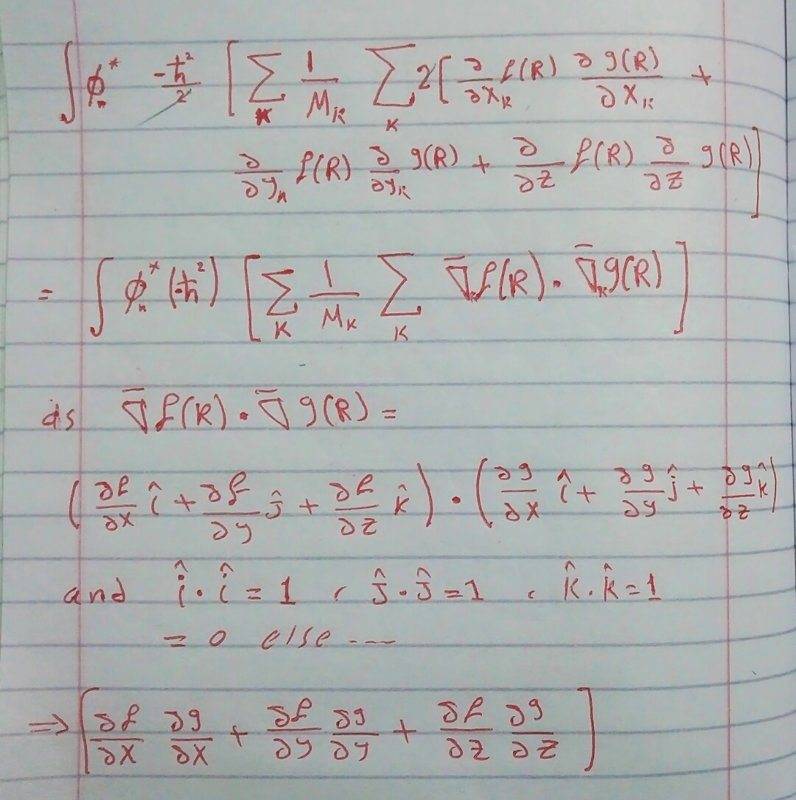 ∫ ϕₙ* -ħ²/2 [ ∑_K 1/M_K ∑_K 2[ ∂/∂X_K f(R) ∂g(R)/∂X_K +
∂/∂y_K f(R) ∂/∂y_K g(R) + ∂/∂z f(R) ∂/∂z g(R) ]
= ∫ ϕₙ* (-ħ²) [ ∑_K 1/M_K ∑_K ∇̄_K f(R) · ∇̄_K g(R) ]
as ∇̄f(R) · ∇̄g(R) =
( ∂f/∂x î + ∂f/∂y ĵ + ∂f/∂z k̂ ) · ( ∂g/∂x î + ∂g/∂y ĵ + ∂g/∂z k̂ )
and î · î = 1 , ĵ · ĵ = 1 , k̂ · k̂ = 1
= 0 else ----
⇒ [ ∂f/∂x ∂g/∂x + ∂f/∂y ∂g/∂y + ∂f/∂z ∂g/∂z ]